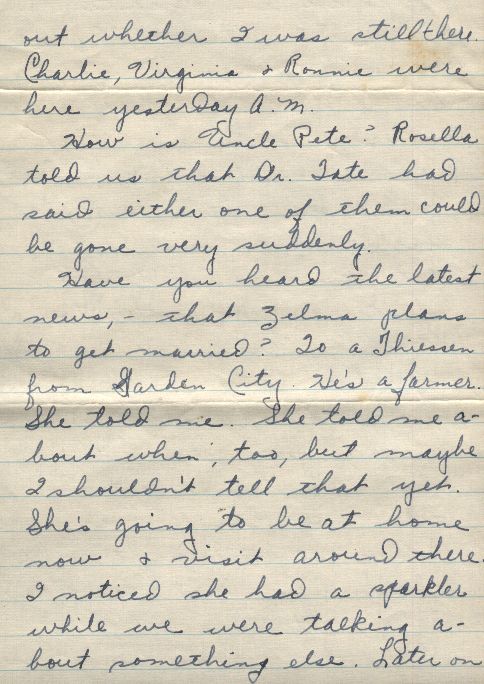 out whether I was still there.
Charlie, Virginia & Ronnie were
here yesterday A.M.
How is Uncle Pete? Rosella
told us that Dr. Tate had
said either one of them could
be gone very suddenly.
Have you heard the latest
news,- that Zelma plans
to get married? To a Thiessen
from Garden City. He's a farmer.
She told me. She told me a-
bout when, too, but maybe
I shouldn't tell that yet.
She's going to be at home
now & visit around there.
I noticed she had a sparkler
while we were talking a-
bout something else. Later on